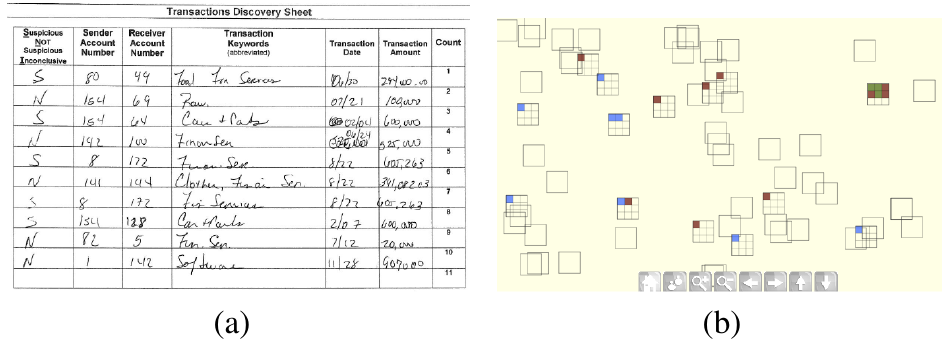 Transactions Discovery Sheet
Suspicious NOT Suspicious Inconclusive Sender Account Number Receiver Account Number Transaction Keywords (abbreviated) Transaction Date Transaction Amount Count
S 80 49 Food Fin Services 1
N 154 69 07/21 100,000 2
S 154 64 Cars + Parts 02/04 600,000 3
N 142 100 Finan Sen 06/24 525,000 4
S 8 172 Finan. Serv 8/22 605,263 5
N 141 144 Clothes, Finan Sen. 8/22 6
S 8 172 Fin Services 8/22 605,263 7
S 154 128 Car + Parts 2/07 600,000 8
N 82 5 Fin. Sen. 7/12 20,000 9
N 1 142 Software 11/28 907000 10
11
(a) (b)